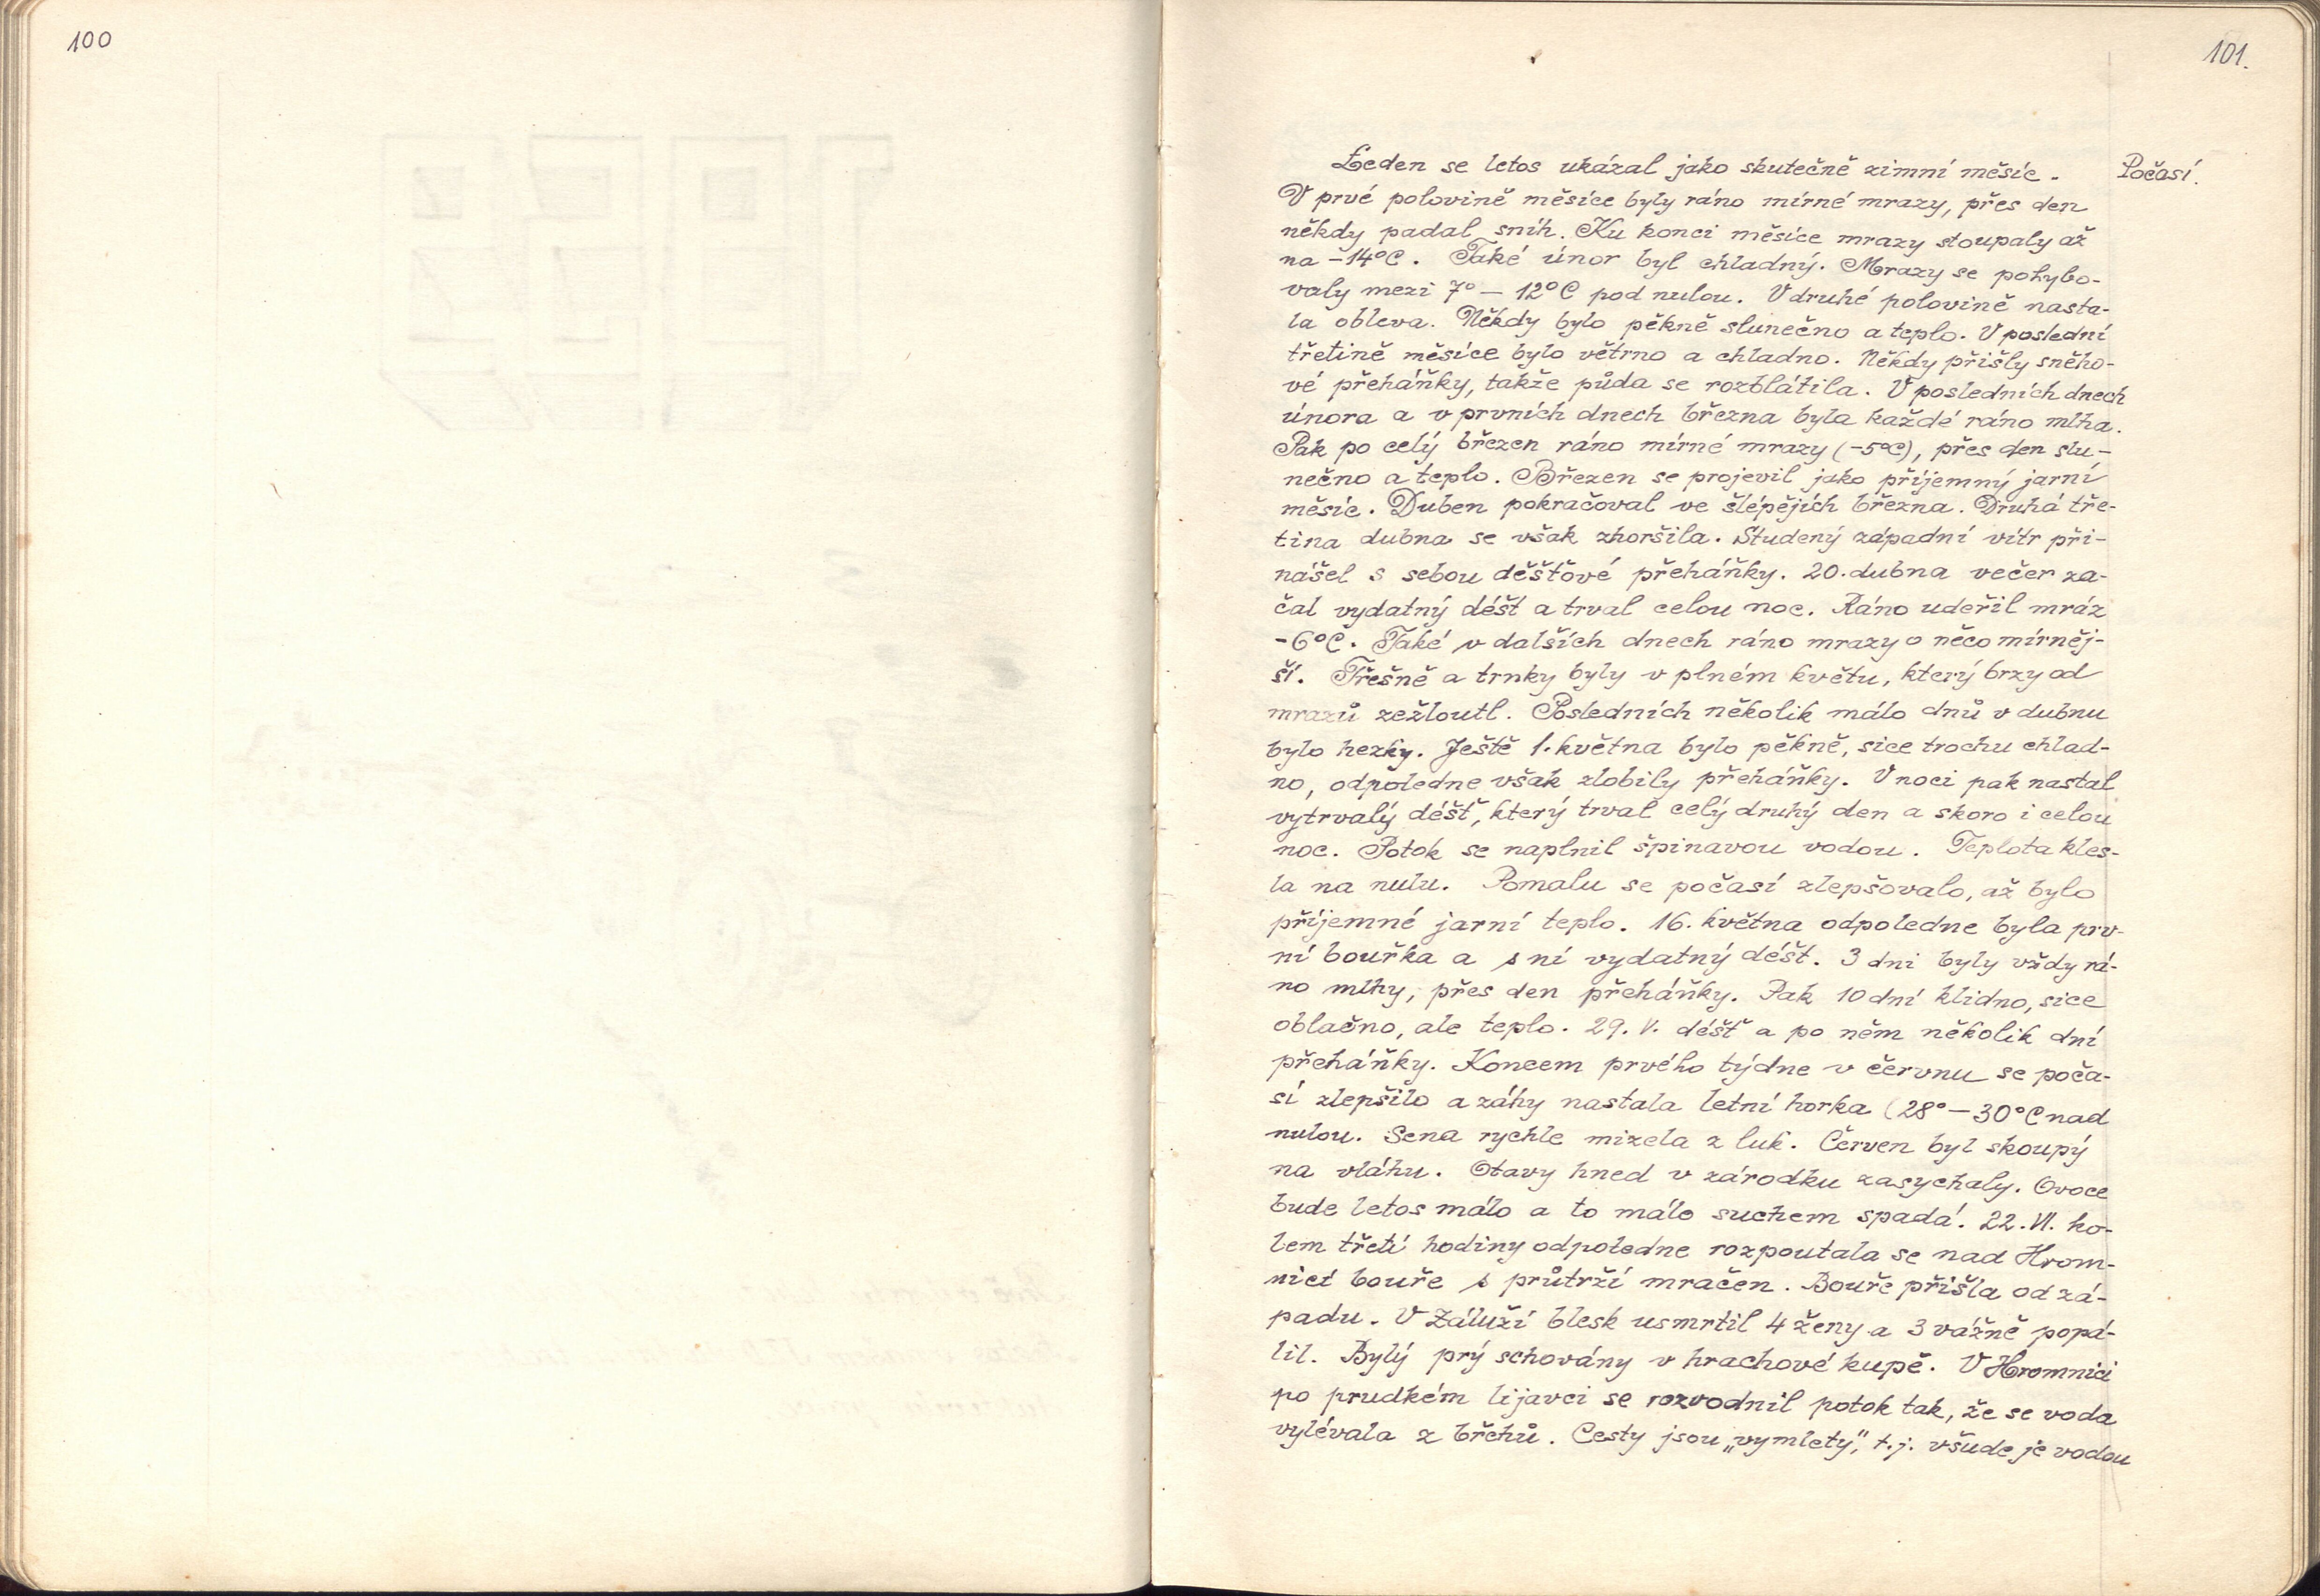 100
101.
Počasí.
Leden se letos ukázal jako skutečně zimní měsíc.
V prvé polovině měsíce byly ráno mírné mrazy, přes den
někdy padal sníh. Ku konci měsíce mrazy stoupaly až
na -14°C. Také únor byl chladný. Mrazy se pohybo-
valy mezi 7° - 12°C pod nulou. V druhé polovině nasta-
la obleva. Někdy bylo pěkně slunečno a teplo. V poslední
třetině měsíce bylo větrno a chladno. Někdy přišly sněho-
vé přeháňky, takže půda se rozblátila. V posledních dnech
února a v prvních dnech března byla každé ráno mlha.
Pak po celý březen ráno mírné mrazy (-5°C), přes den slu-
nečno a teplo. Březen se projevil jako příjemný jarní
měsíc. Duben pokračoval ve šlépějích března. Druhá tře-
tina dubna se však zhoršila. Studený západní vítr při-
nášel s sebou děšťové přeháňky. 20. dubna večer za-
čal vydatný déšť a trval celou noc. Ráno udeřil mráz
-6°C. Také v dalších dnech ráno mrazy o něco mírněj-
ší. Třešně a trnky byly v plném květu, který brzy od
mrazů zežloutl. Posledních několik málo dnů v dubnu
bylo hezky. Ještě 1. května bylo pěkně, sice trochu chlad-
no, odpoledne však zlobily přeháňky. V noci pak nastal
vytrvalý déšť, který trval celý druhý den a skoro i celou
noc. Potok se naplnil špinavou vodou. Teplota kles-
la na nulu. Pomalu se počasí zlepšovalo, až bylo
příjemné jarní teplo. 16. května odpoledne byla prv-
ní bouřka a s ní vydatný déšť. 3 dni byly vždy rá-
no mlhy, přes den přeháňky. Pak 10 dní klidno, sice
oblačno, ale teplo. 29. V. déšť a po něm několik dní
přeháňky. Koncem prvého týdne v červnu se poča-
sí zlepšilo a záhy nastala letní horka (28° - 30°C nad
nulou. Sena rychle mizela z luk. Červen byl skoupý
na vláhu. Otavy hned v zárodku zasychaly. Ovoce
bude letos málo a to málo suchem spadá. 22. VI. ko-
lem třetí hodiny odpoledne rozpoutala se nad Hrom-
nicí bouře s průtrží mračen. Bouře přišla od zá-
padu. V Záluží blesk usmrtil 4 ženy a 3 vážně popá-
lil. Byly prý schovány v hrachové kupě. V Hromnici
po prudkém lijavci se rozvodnil potok tak, že se voda
vylévala z břehů. Cesty jsou „vymlety", t.j. všude je vodou